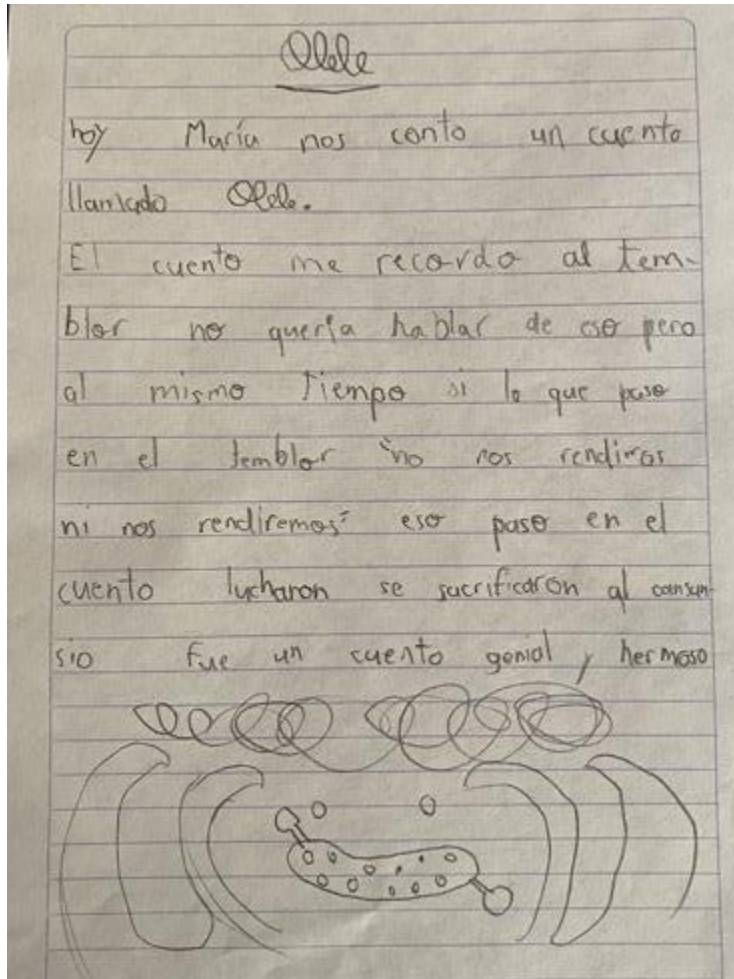 Olele
hoy María nos conto un cuento
llamado Olele.
El cuento me recordo al tem-
blor no quería hablar de eso pero
al mismo tiempo si lo que paso
en el temblor "no nos
ni nos rendiremos" eso paso en el
cuento lucharon se sacrificaron al cansan-
sio fue un cuento genial y hermoso